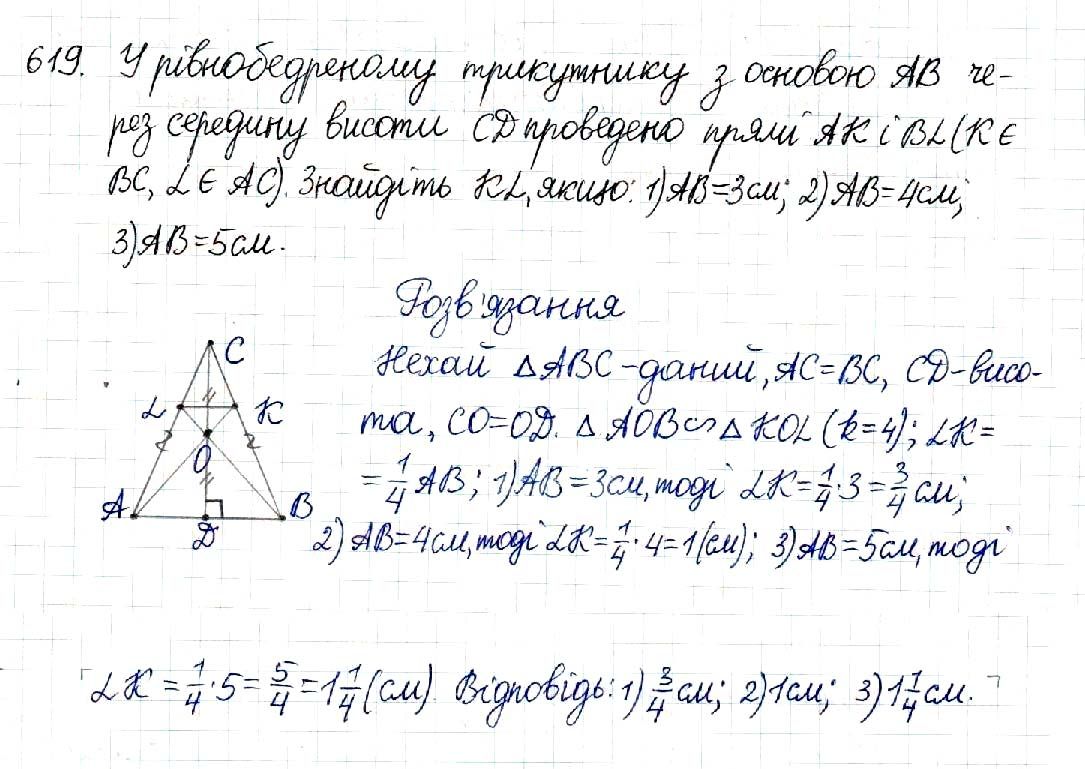 619. У рівнобедреному трикутнику з основою AB че-
рез середину висоти CD проведено прямі AK і BL (K ∈
BC, L ∈ AC). Знайдіть KL, якщо: 1) AB=3см; 2) AB=4см;
3) AB=5см.
Розв'язання
Нехай △ABC - даний, AC=BC, CD - висо-
та, CO=OD. △AOB ∽ △KOL (k=4); LK=
= 1/4 AB; 1) AB=3см, тоді LK = 1/4 · 3 = 3/4 см;
2) AB=4см, тоді LK = 1/4 · 4 = 1 (см); 3) AB=5см, тоді
LK = 1/4 · 5 = 5/4 = 1 1/4 (см). Відповідь: 1) 3/4 см; 2) 1см; 3) 1 1/4 см.
C
L K
O
A B
D